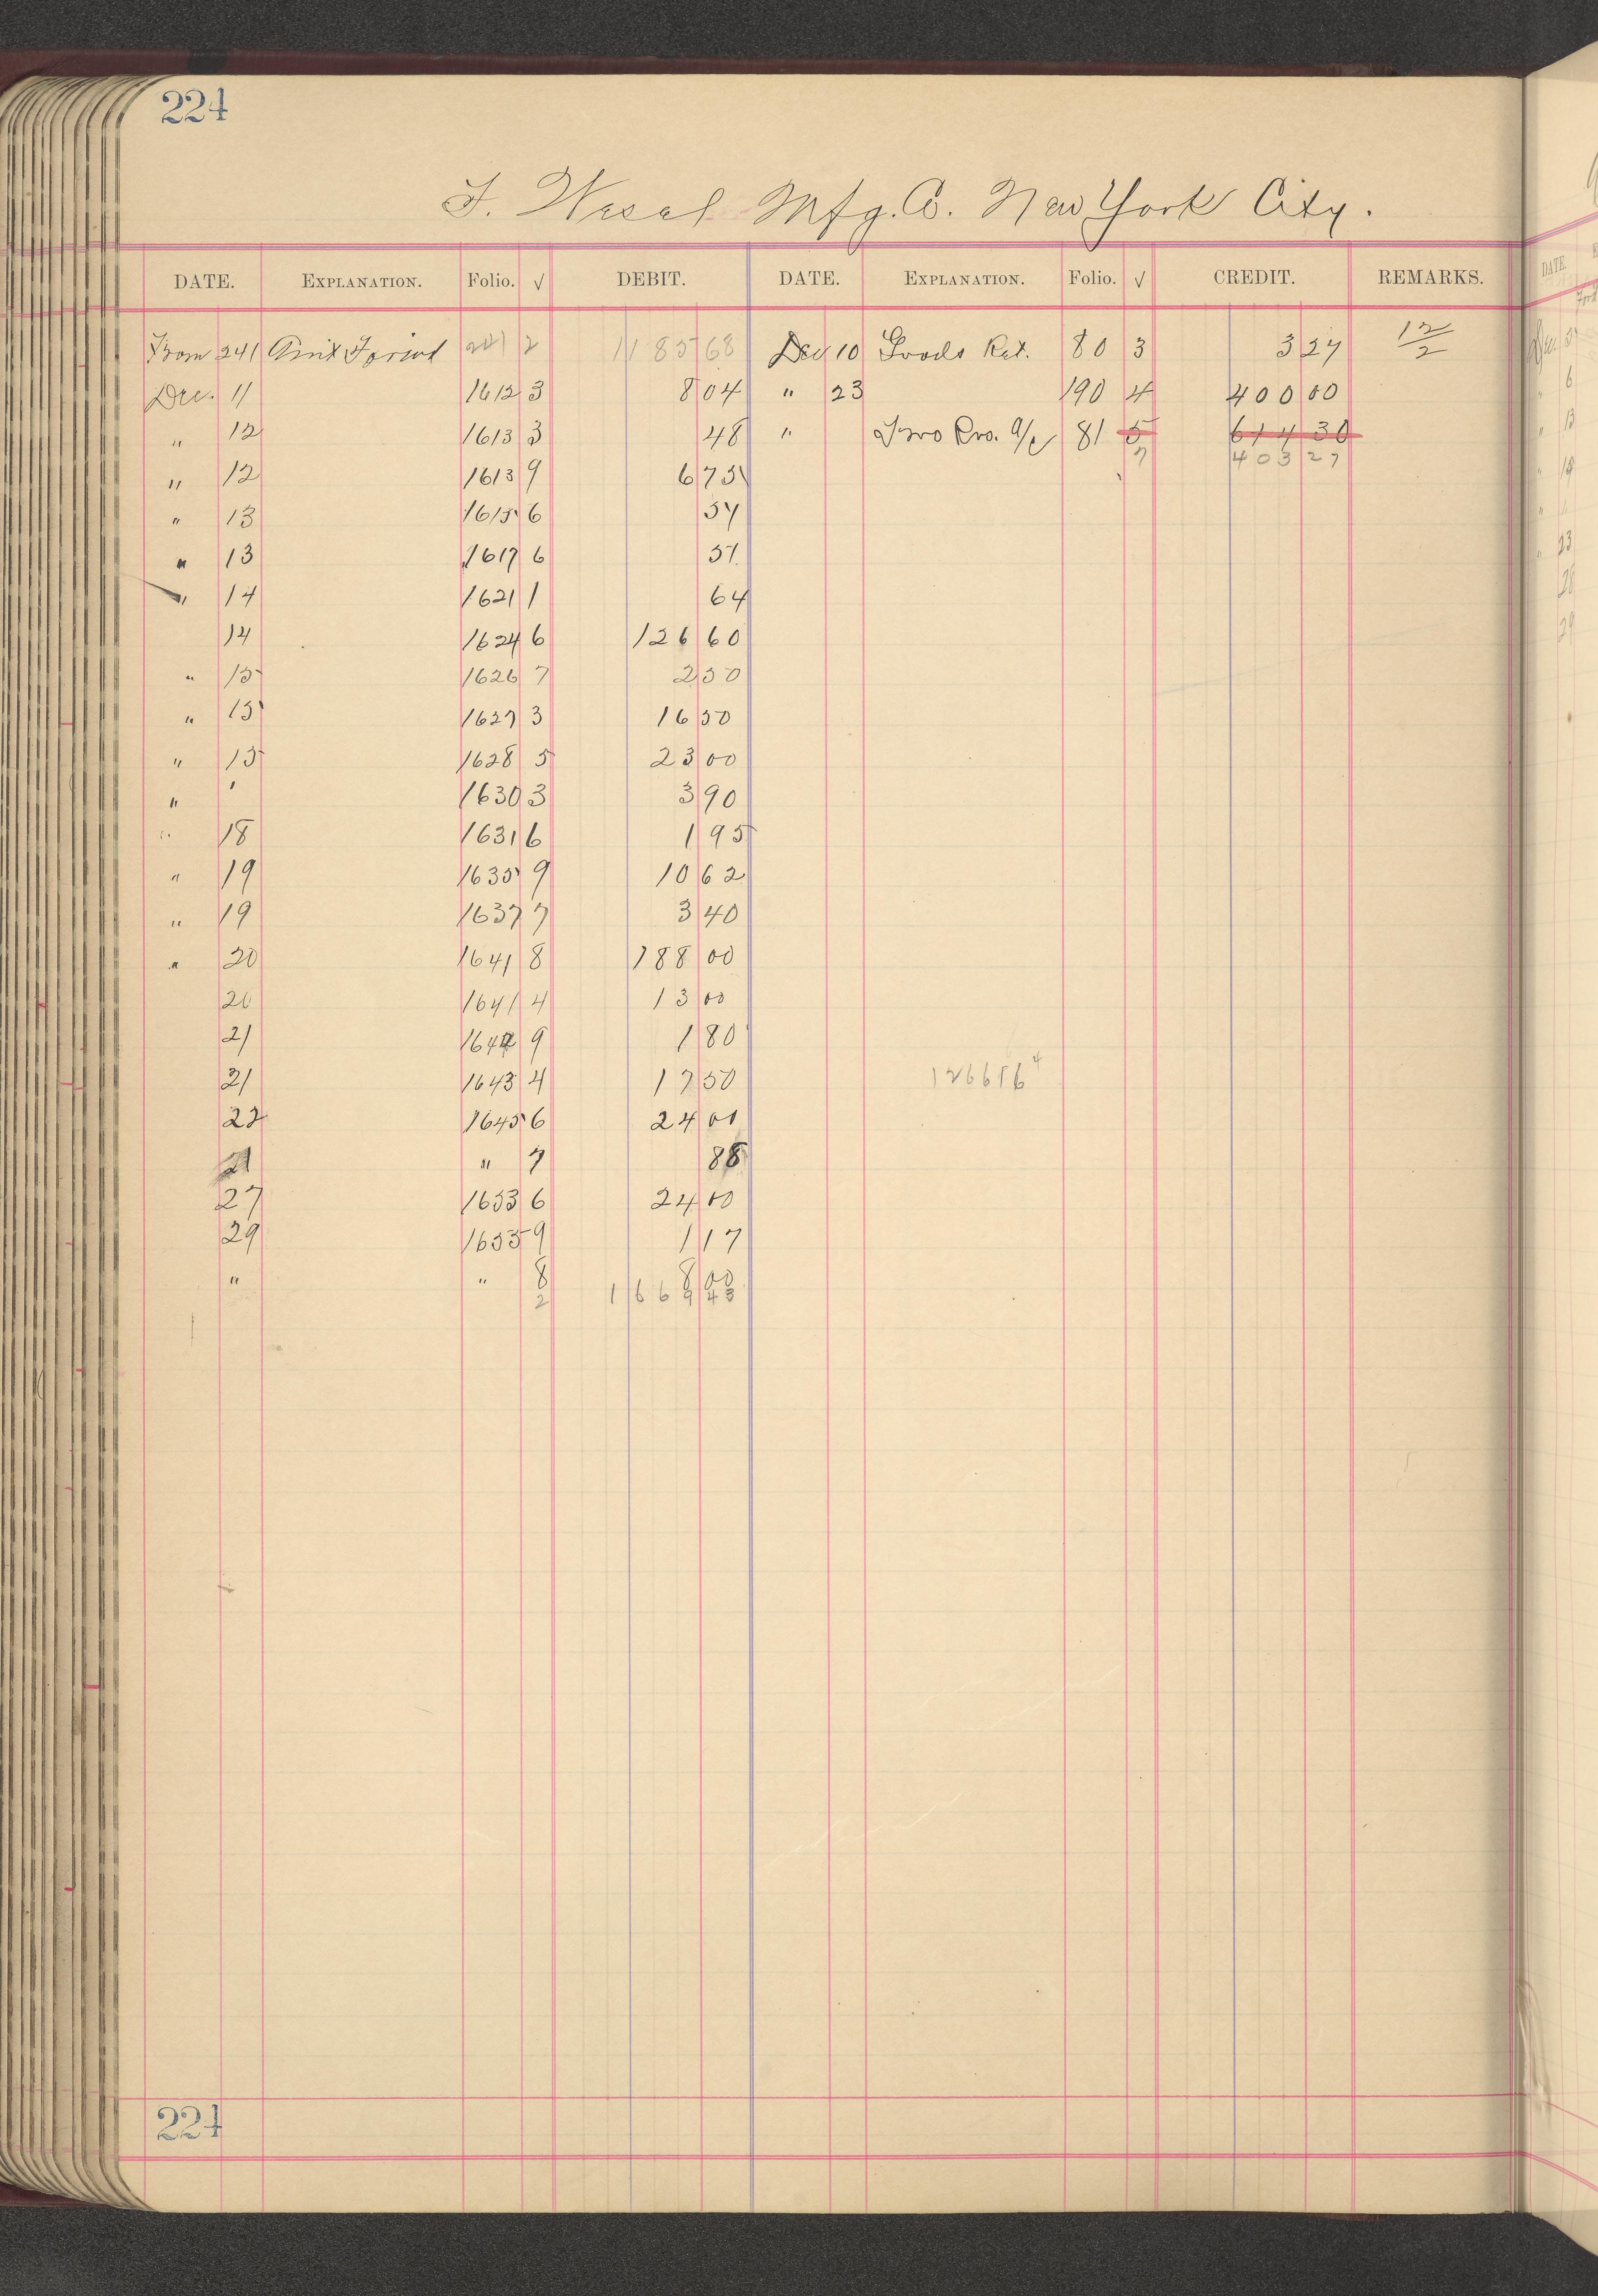 224
F. Wesel Mfg. Co. New York City.
DATE. EXPLANATION. Folio. √ DEBIT. DATE. EXPLANATION. Folio. √ CREDIT. REMARKS.
From 241 Amt Forwd 241 2 1185 68 Dec 10 Goods Ret. 80 3 3 27 12/2
Dec. 11 1612 3 8 04 " 23 190 4 400 00
" 12 1613 3 48 " 81 5 614 30
7 403 27
" 12 1613 9 6 75
" 13 1615 6 57
" 13 1617 6 51
" 14 1621 1 64
14 1624 6 126 60
" 15 1626 7 2 50
" 15 1627 3 16 50
" 15 1628 5 23 00
" ' 1630 3 3 90
" 18 1631 6 1 95
" 19 1635 9 10 62
" 19 1637 7 3 40
" 20 1641 8 188 00
20 1641 4 13 00
21 1642 9 1 80
21 1643 4 17 50
126616 4
22 1645 6 24 01
" 7 88
27 1653 6 24 00
29 1655 9 1 17
" " 8 8 00
2 1669 43
224